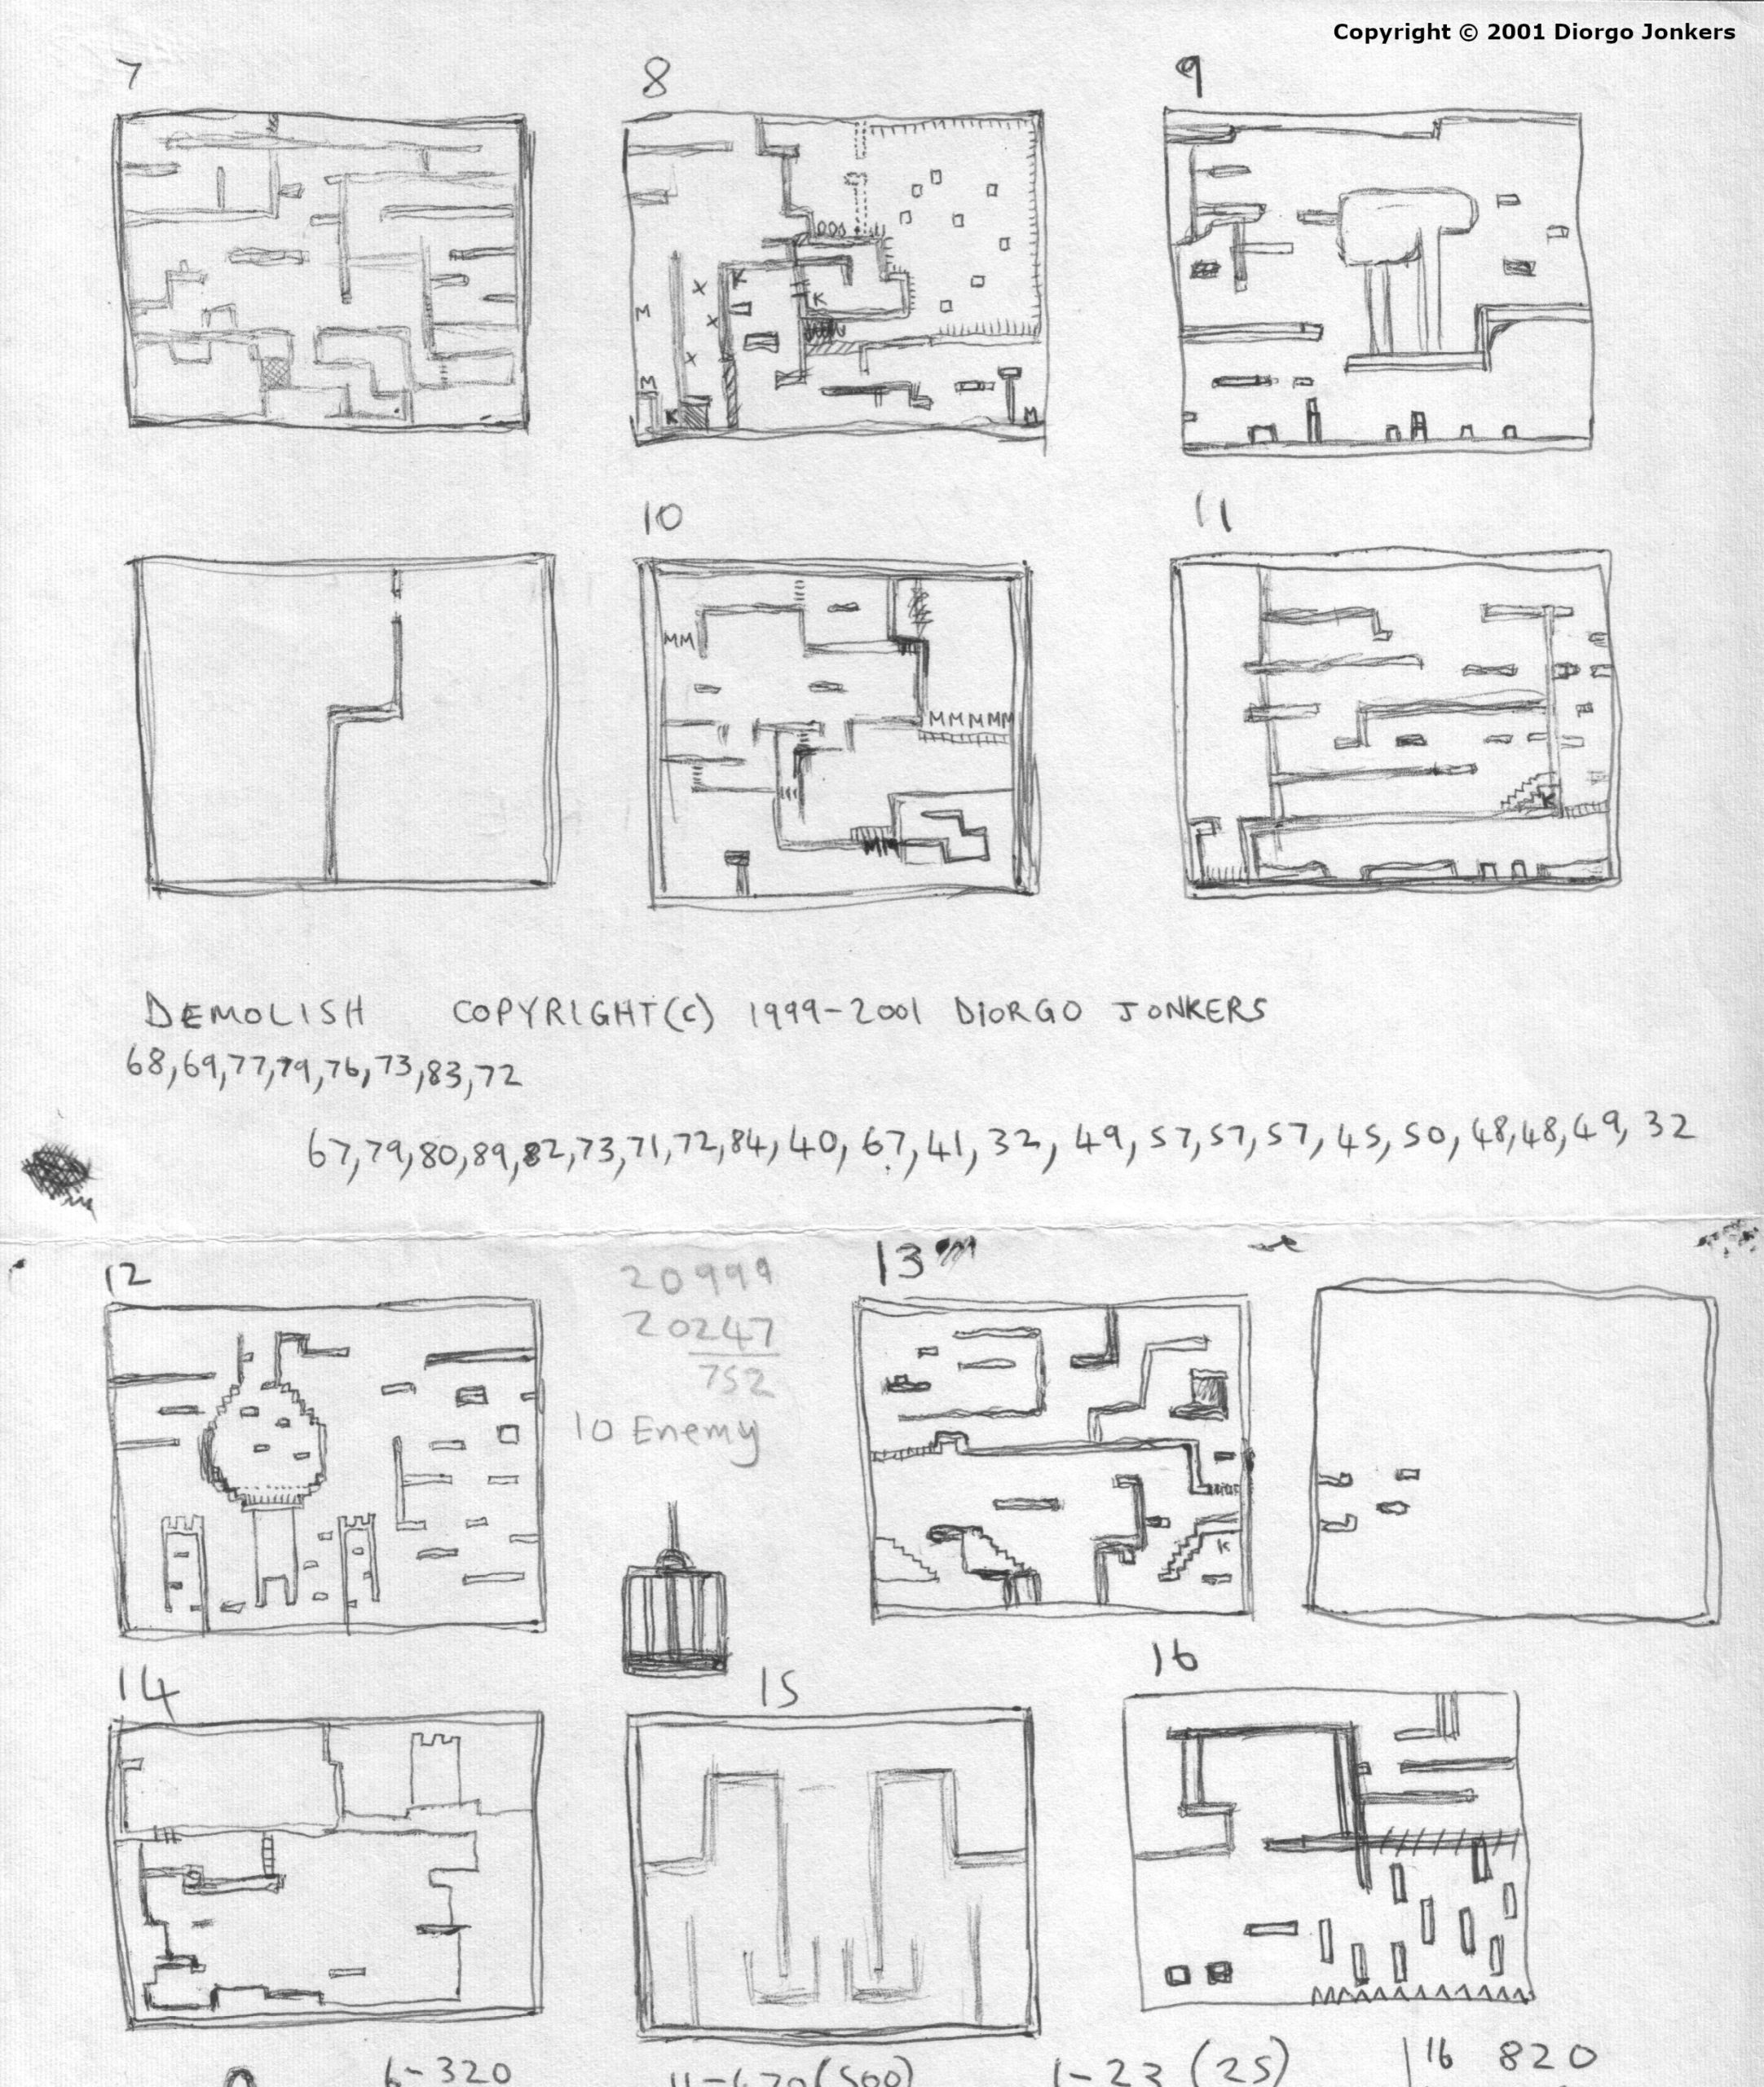 Copyright © 2001 Diorgo Jonkers
7
8
9
M
M
K
X
X
X
K
K
M
10
11
MM
MMMMM
MM
K
DEMOLISH COPYRIGHT(C) 1999-2001 DIORGO JONKERS
68,69,77,79,76,73,83,72
67,79,80,89,82,73,71,72,84,40,67,41,32,49,57,57,57,45,50,48,48,49,32
12
20999
13
20247
752
10 Enemy
K
14
15
16
6-320
1-23 (25)
16 820